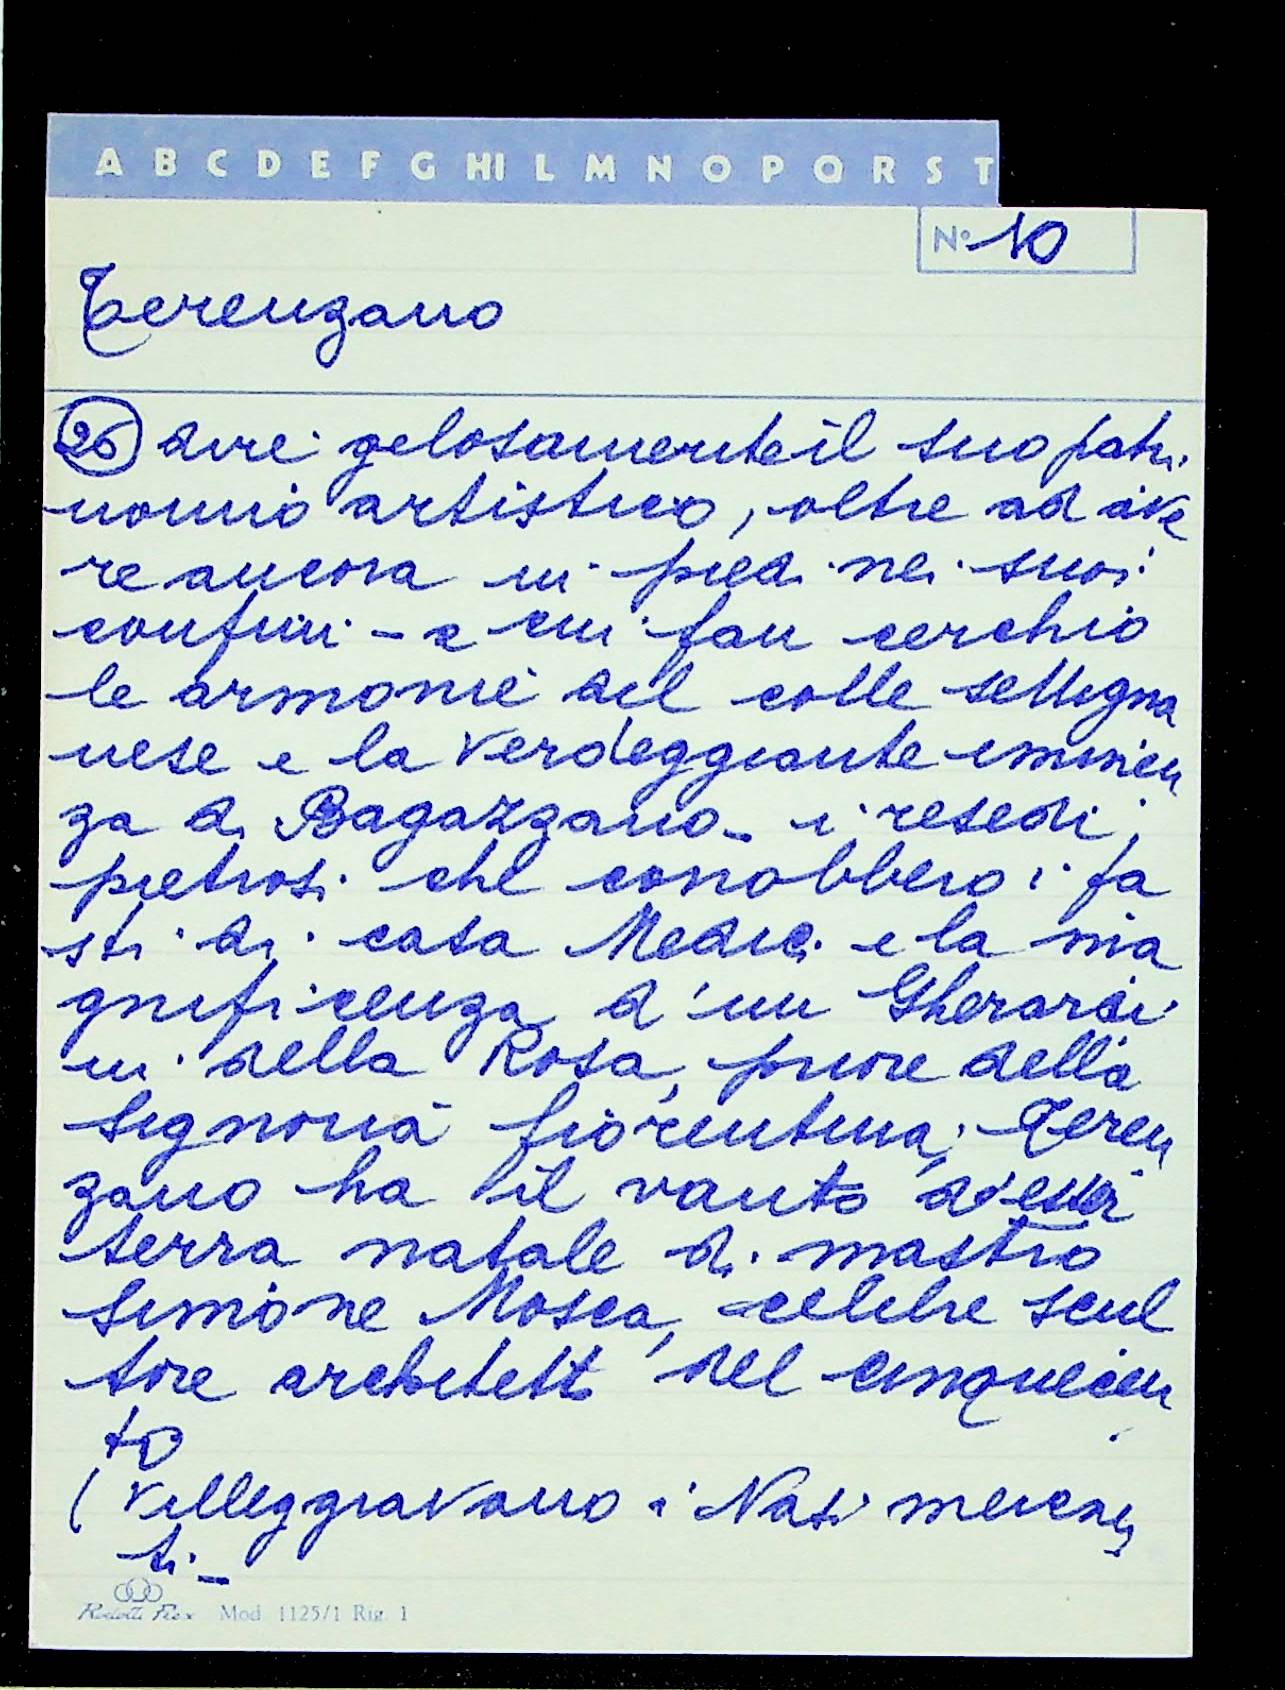 A B C D E F G HI L M N O P Q R S T
N° 10
Terenzano
26 dire gelosamente il suo patri
monio artistico, oltre ad ave
re ancora in piedi nei suoi
confini - a cui fan cerchio
le armonie del colle settigna
nese e la verdeggiante eminen
za di Bagazzano - i resedi
pietrosi che conobbero i fa
sti di casa Medici e la ma
gnificenza d'un Gherardi
ni della Rosa, priore della
Signoria fiorentina; Teren
zano ha il vanto d'esser
terra natale di mastro
Simone Mosca, celebre scul
tore architetto del cinquecen
to
( villeggiavano i Nasi mercan
ti -
Mod. 1125/1 Rig. 1